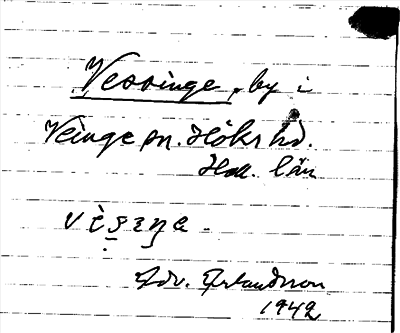 Vessinge, by i
Veinge sn. Höks hd.
Hall. län
vèseŋe.
Edv. Erlandsson
1942